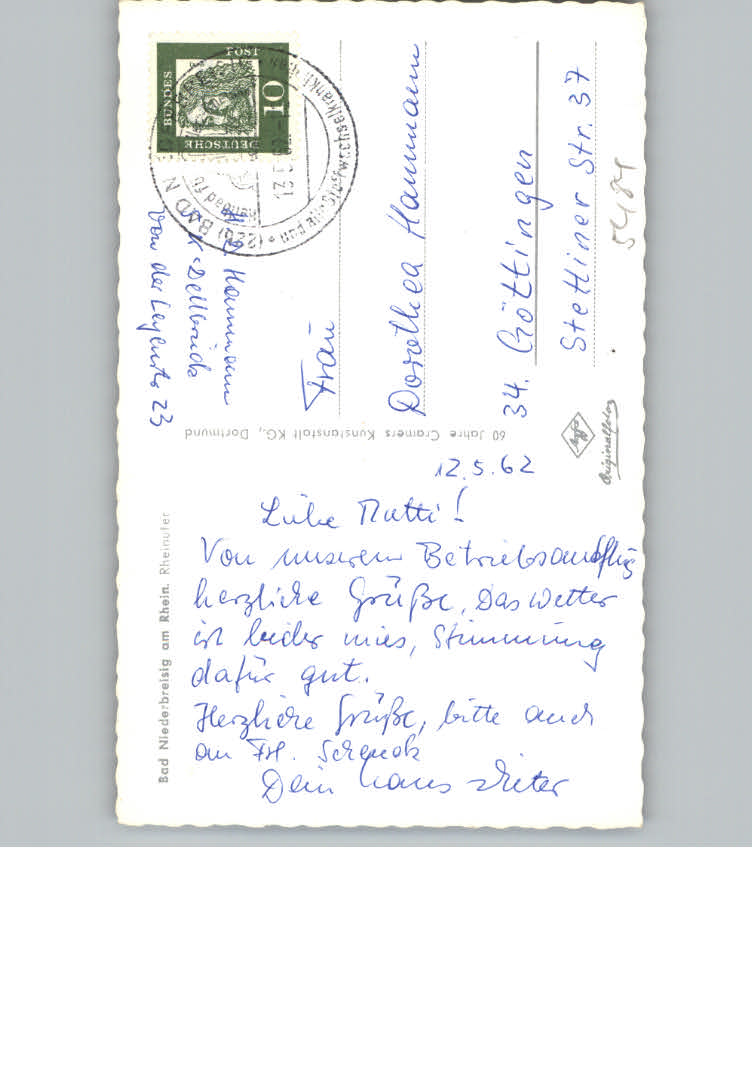 12.5.62
Liebe Mutti!
Von unserem Betriebsausflug
herzliche Grüße, Das Wetter
ist leider mies, Stimmung
dafür gut.
Herzliche Grüße, bitte auch
an Frl. Schenck
Dein Hans Dieter
Bad Niederbreisig am Rhein. Rheinufer
60 Jahre Cramers Kunstanstalt KG., Dortmund
Agfa
Originalfoto
DEUTSCHE
BUNDES
POST
10
(22b) BAD N
Hammann
K-Dellbrück
Von der Leyenstr 23
Frau
Dorothea Hammann
34. Göttingen
Stettiner Str. 37
5484